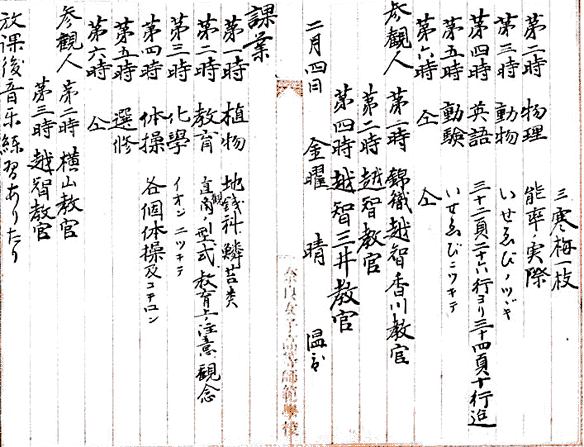 三寒梅一枝
第二時 物理 能率ノ実際
第三時 動物 いせゑびノツヾキ
第四時 英語 三十二頁二十六行ヨリ三十四頁十行迄
第五時 動験 いせゑびニツキテ
第六時 仝 仝
参観人 第一時 錦織越智香川教官
第二時 越智教官
第四時 越智三井教官
二月四日 金曜 晴 温
奈良女子高等師範学校
課業
第一時 植物 地銭科 鱗苔类
第二時 教育 直観ノ型式 教育上ノ注意 観念
第三時 化學 イオンニツキテ
第四時 体操 各個体操及
第五時 選修
第六時 仝
参観人 第二時 横山教官
第三時 越智教官
放課後音楽練習ありたり